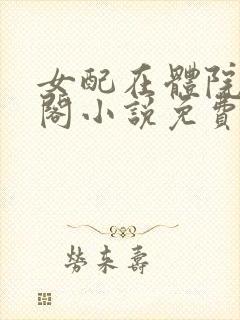 女配在體院
閣小說免費
勞來壽